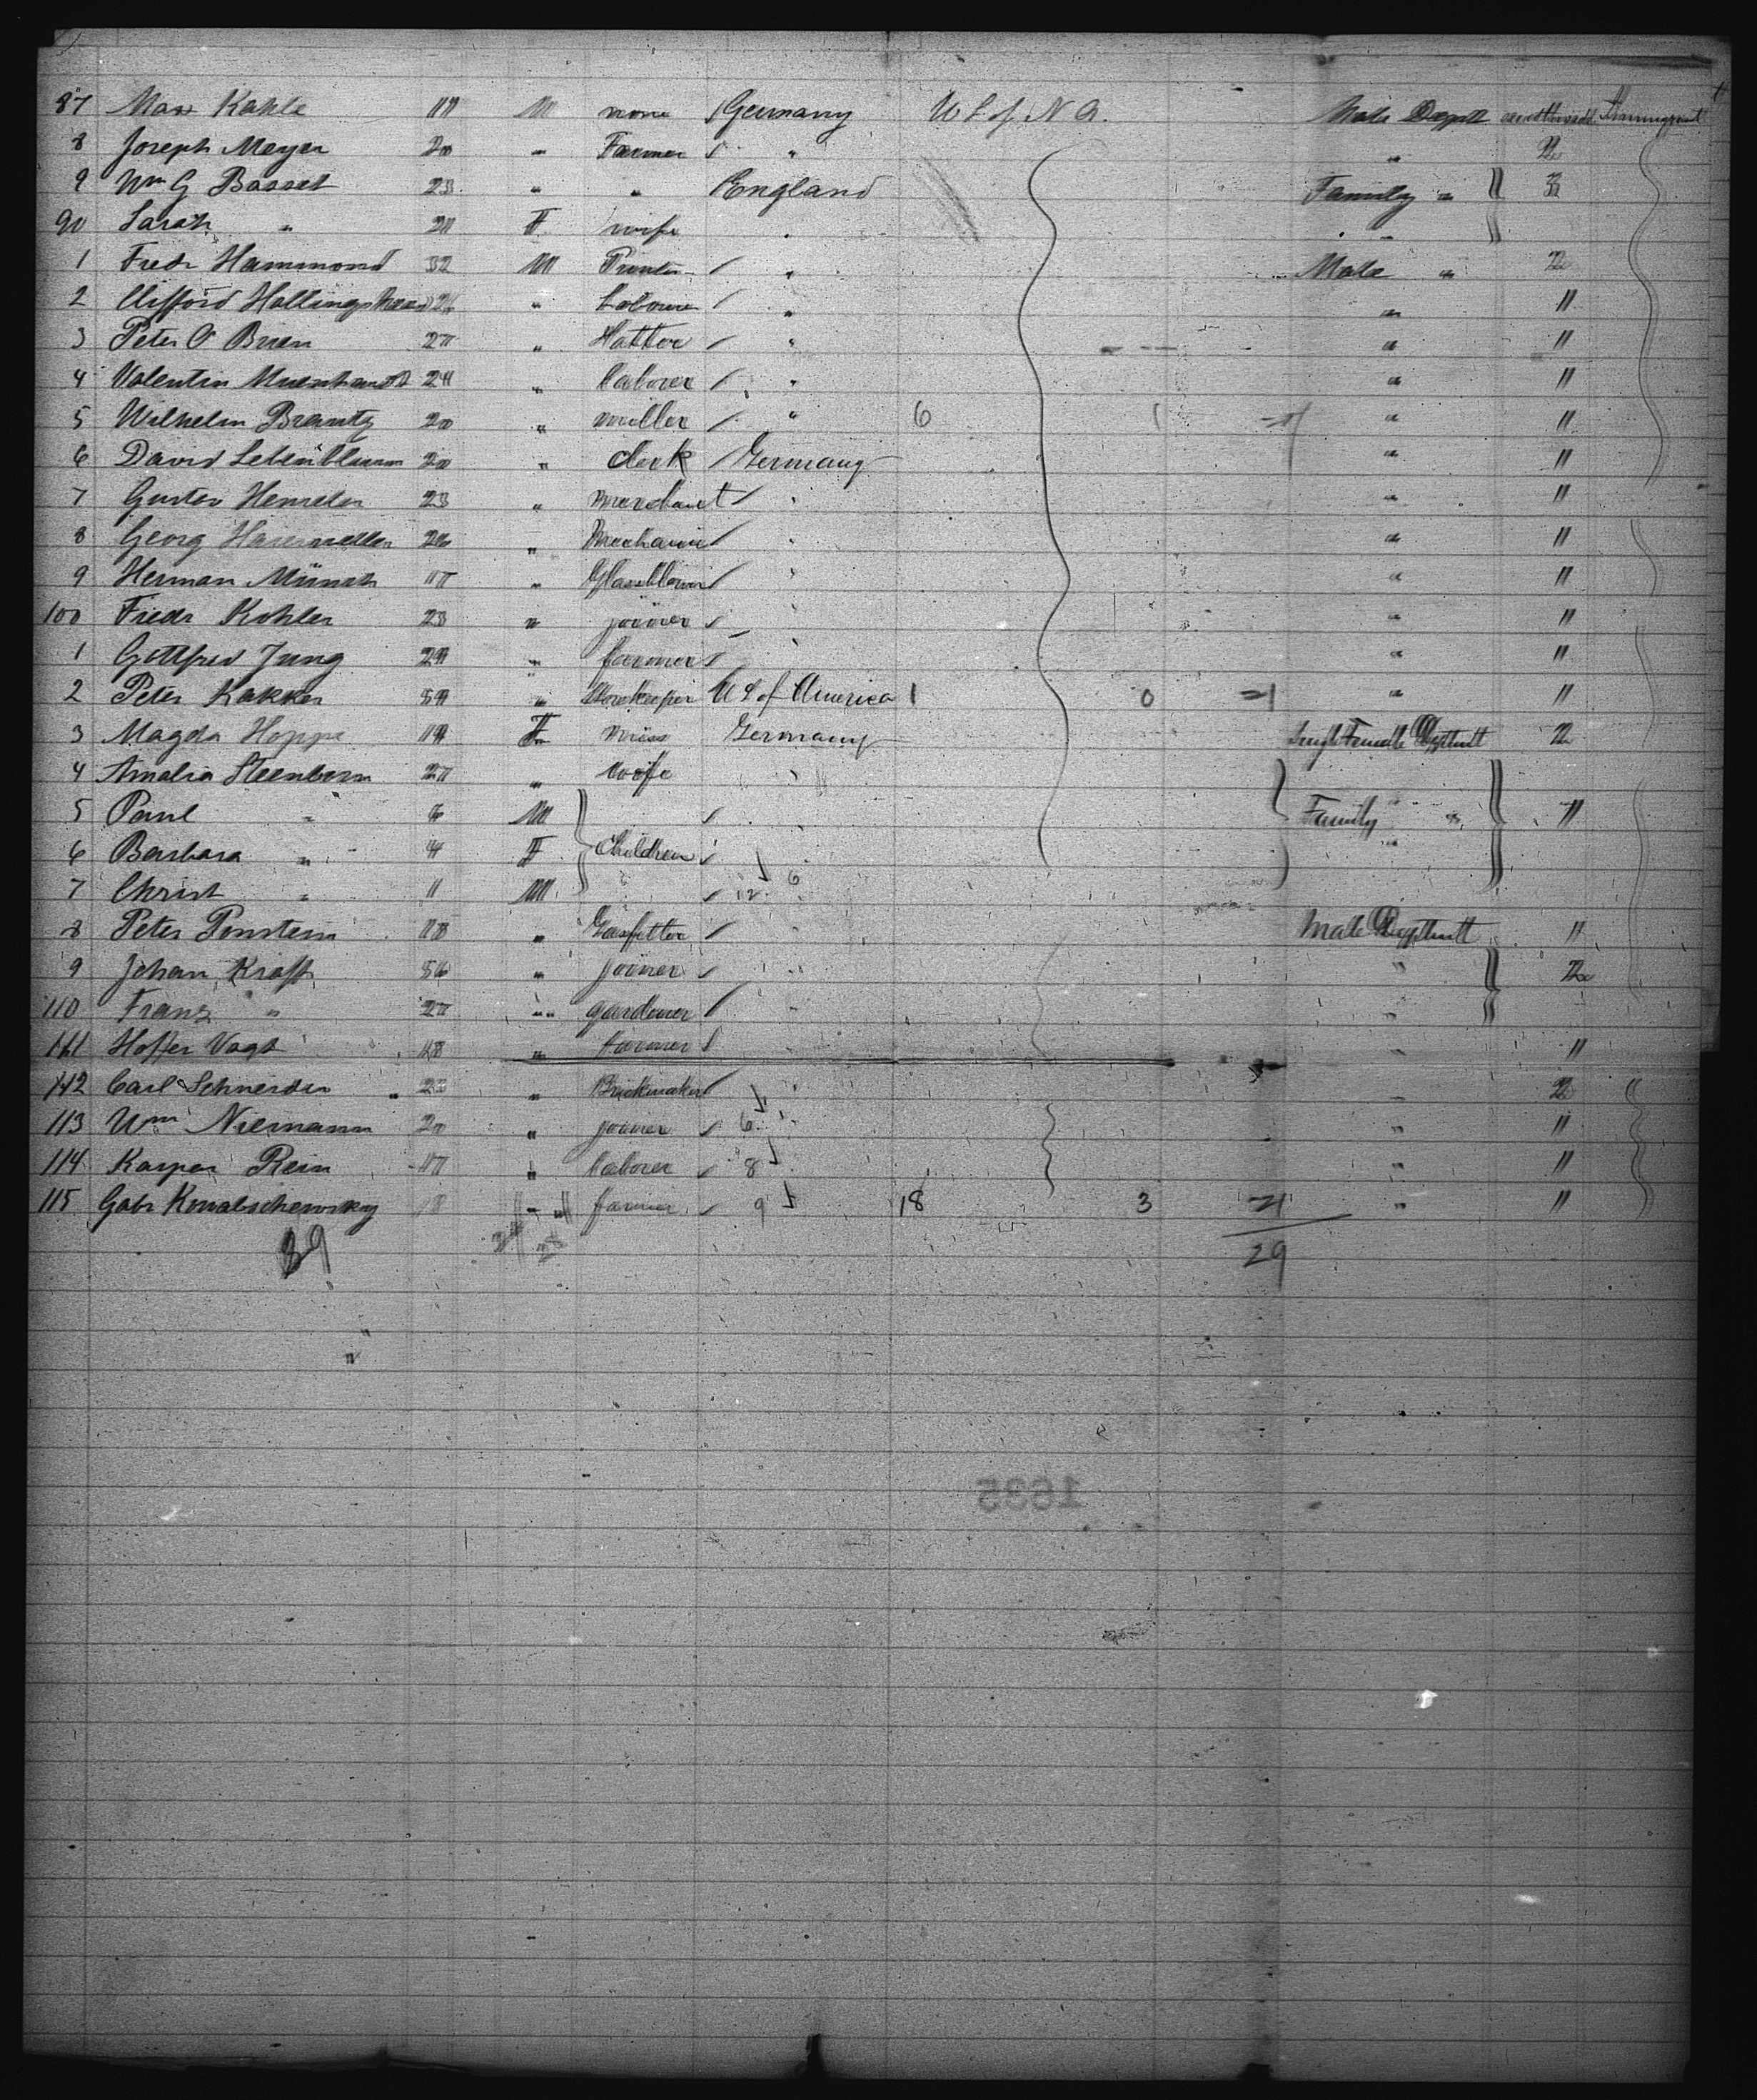 87 Max Kahle 11 M none Germany U S of N A. Male Deptt
8 Joseph Meyer 20 " Farmer " " 2
9 Wm G Basset 23 " " England Family " 3
90 Sarah " 21 F wife "
1 Fredr Hammond 32 M Printer " Male " 2
2 Clifford Hollingshead " Labourer " " "
3 Peter O Brien 27 " Hatter " " "
4 Valentin 24 " laborer " " "
5 Wilhelm Brantz 20 " miller " 6 1 " "
6 David 20 " clerk Germany " "
7 Gustav 23 " merchant " " "
8 Georg 26 " Mechanic " " "
9 Herman Münch 17 " Glassblower " " "
100 Fredr Kohler 23 " joiner " " "
1 Gottfried Jung 29 " farmer " " "
2 Peter Kakker 59 " Storekeeper U S of America 1 0 =1 " "
3 Magda Hoppe 19 F miss Germany Single Female Deptmt 2
4 Amalia Steenborn 27 " wife "
5 Paul " 6 M " Family " "
6 Barbara " 4 F Children
7 Christ " 11 M 12 6
8 Peter Ponstein 18 " Gasfitter " Male Deptmtt "
9 Johan Kraft 56 " joiner " " 2
110 Franz " 27 " gardener " "
111 Hoffer Vagt 18 " farmer " "
112 Carl Schneider 23 " Brickmaker " " 2
113 Wm Niemann 20 " joiner 6 " " "
114 Kaspar Rein 17 " laborer 8 " "
115 Gabr Kowalschewsky 18 " farmer 9 18 3 21 " "
39 29
1635